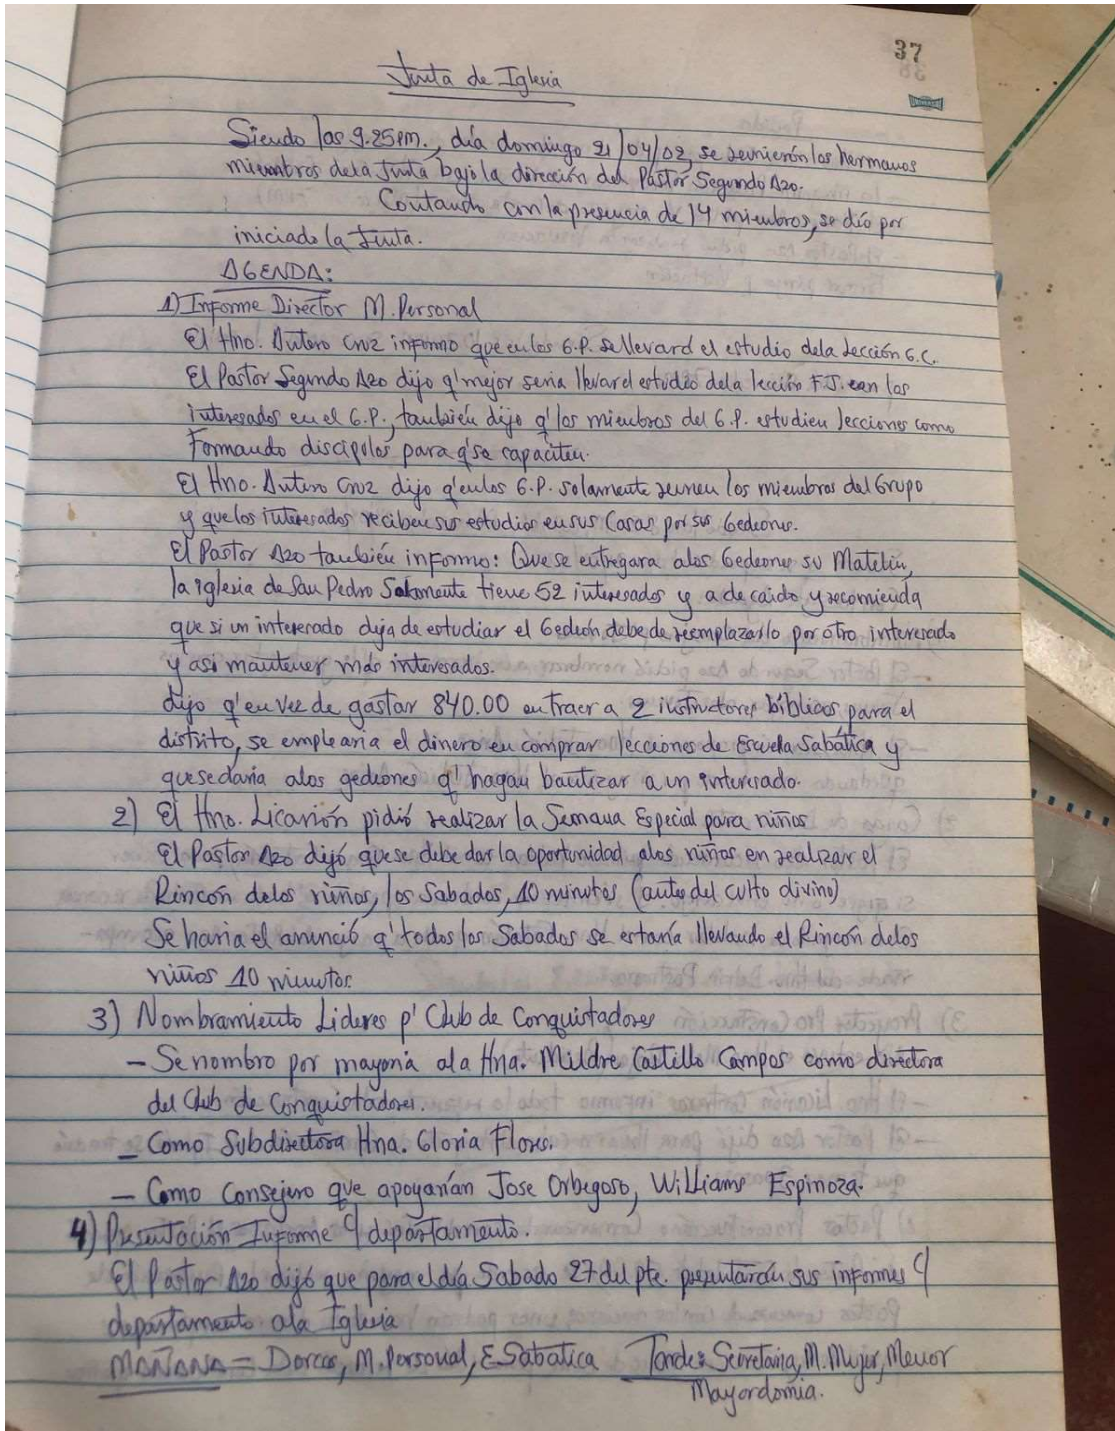 37
UNIVERSAL
Junta de Iglesia
Siendo las 9.25pm., día domingo 21/04/02, se reunierón los hermanos
miembros dela Junta bajo la dirección del Pastor Segundo Azo.
Contando con la presencia de 14 miembros, se dío por
iniciado la Junta.
AGENDA:
1) Informe Director M. Personal
El Hno. Antero Cruz informo que en los G.P. se llevará el estudio dela Lección G.C.
El Pastor Segundo Azo dijo q' mejor seria llevar el estudio dela lección F.J. con los
interesados en el G.P., también dijo q' los miembros del G.P. estudien lecciones como
Formando discipulos para q' se capaciten.
El Hno. Antero Cruz dijo q' en los G.P. solamente reunen los miembros del Grupo
y que los interesados reciben sus estudios en sus Casas por sus Gedeones.
El Pastor Azo también informo: Que se entregara alos Gedeones su Maletín,
la iglesia de San Pedro Solamente tiene 52 interesados y a decaido y recomienda
que si un interesado deja de estudiar el Gedeón debe de reemplazarlo por otro interesado
y asi mantener más interesados.
dijo q' en vez de gastar 840.00 en traer a 2 instructores bíblicos para el
distrito, se emplearia el dinero en comprar lecciones de Escuela Sabática y
que se daria alos gedeones q' hagan bautizar a un interesado.
2) El Hno. Licarión pidió realizar la Semana Especial para niños
El Pastor Azo dijó que se debe dar la oportunidad alos niños en realizar el
Rincón delos niños, los Sabados, 10 minutos (antes del culto divino)
Se haria el anunció q' todos los Sabados se estaría llevando el Rincón delos
niños 10 minutos.
3) Nombramiento Lideres p' Club de Conquistadores
- Se nombro por mayoría ala Hna. Mildre Castillo Campos como directora
del Club de Conquistadores.
- Como Subdirectora Hna. Gloria Flores.
- Como Consejero que apoyarían Jose Orbegoso, Williams Espinoza.
4) Presentación Informe c/ departamento.
El Pastor Azo dijó que para el día Sabado 27 del pte. presentarán sus informes c/
departamento ala Iglesia
MAÑANA = Dorcas, M. Personal, E Sabatica Tarde: Secretaria, M. Mujer, Menor
Mayordomia.